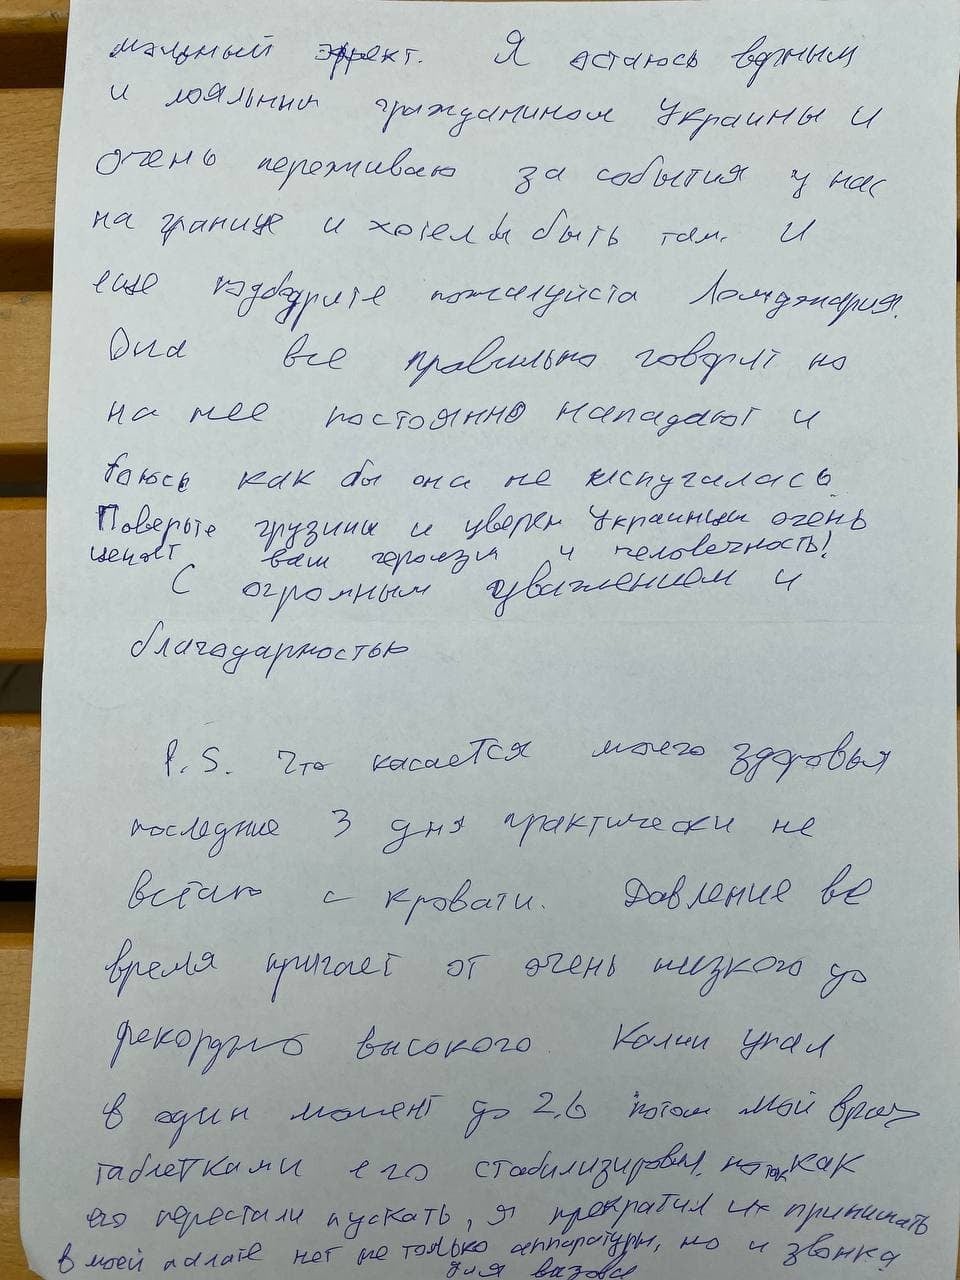 мальный эффект. Я остаюсь верным
и лояльным гражданином Украины и
очень переживаю за события у нас
на границе и хотел бы быть там. И
еще подбодрите пожалуйста
Она все правильно говорит но
на нее постоянно нападают и
боюсь как бы она не испугалась
Поверьте грузины и уверен Украинцы очень
ценят ваш героизм и человечность!
С огромным уважением и
благодарностью
P.S. Что касается моего здоровья
последние 3 дня практически не
встаю с кровати. Давление все
время прыгает от очень низкого до
рекордно высокого. Калий упал
в один момент до 2,6 потом мой врач
таблетками его стабилизировал, но так как
его перестали пускать, я прекратил их принимать
в моей палате нет не только аппаратуры, но и звонка
для вызова